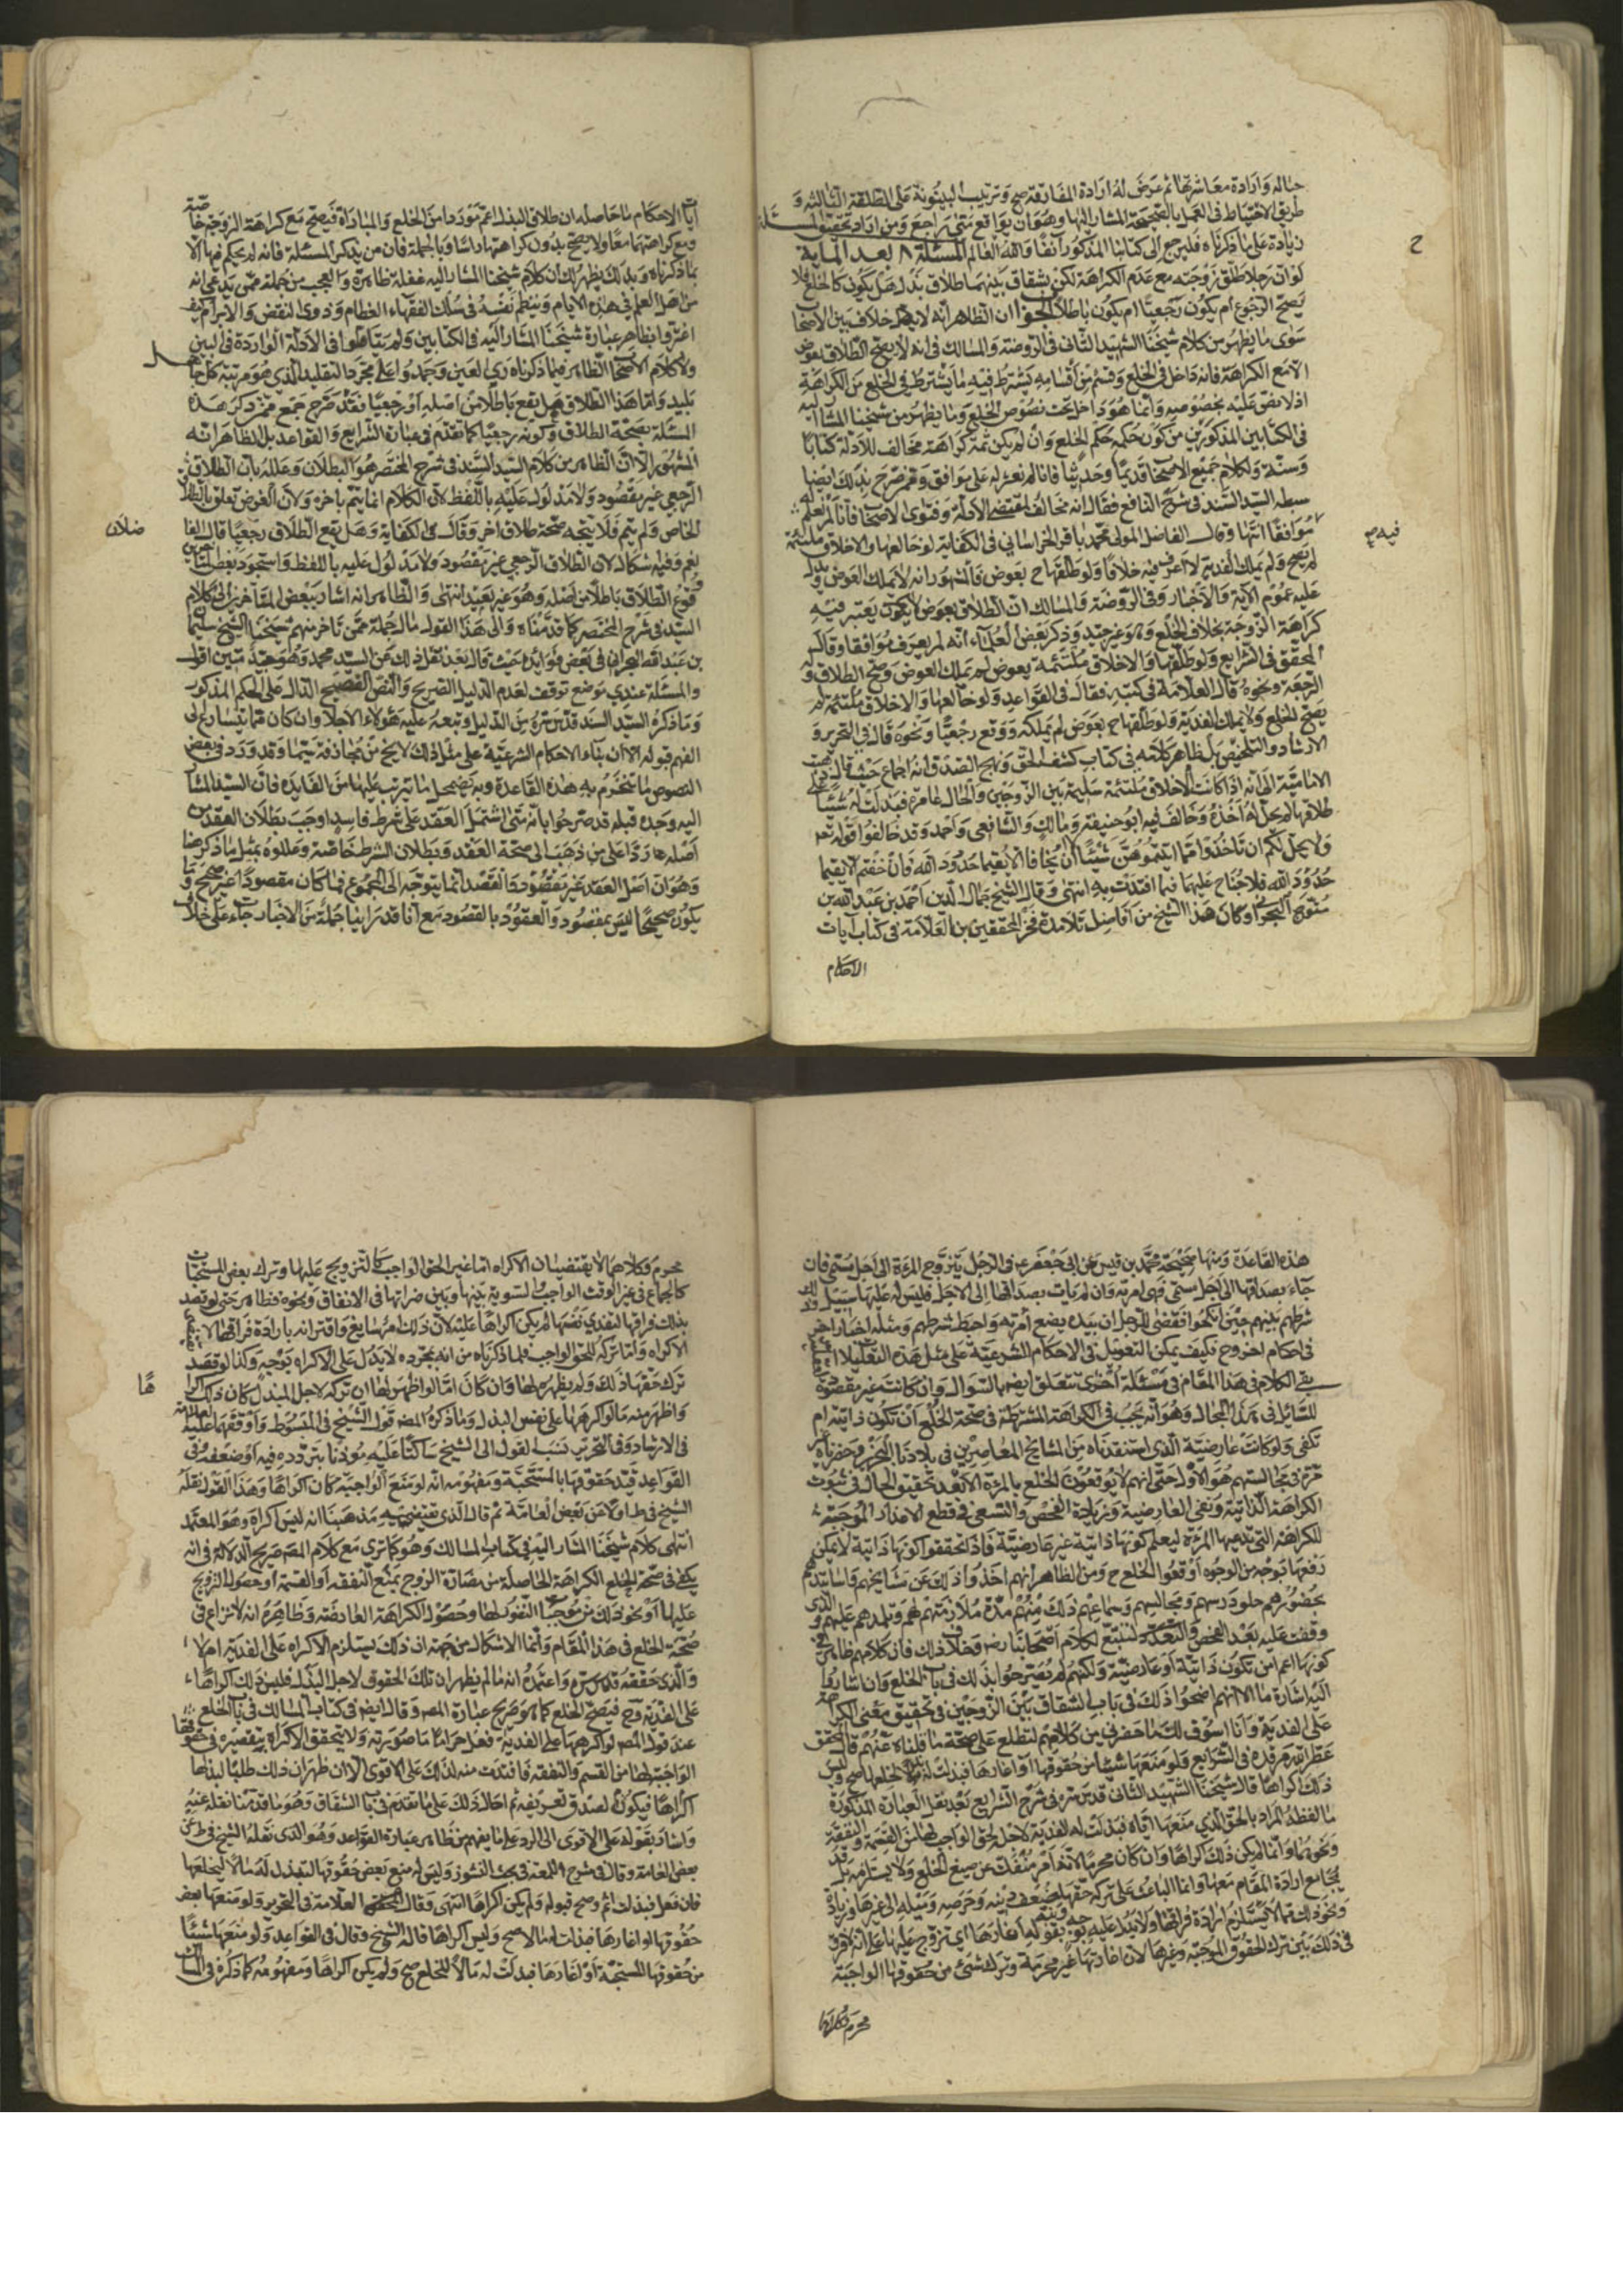 حاله وارادة معاشرتها ثم عرض له ارادة المفارقة صح وترتيب البينونة على الطلقة الثالثة و
طريق الاحتياط في العمل بالصحيحة المشار اليها وهو ان يواقع متى راجع ومن اراد تحقيق المسئلة
زيادة على ما ذكرناه فليرجع الى كتابنا المذكور آنفا والله العالم المسئلة ٨ بعد الماية
لو ان رجلا طلق زوجته مع عدم الكراهة لكن بشقاق بينهما طلاق بذل هل يكون كالخلع فلا
يصح الرجوع ام يكون رجعيا ام يكون باطلا الجواب ان الظاهر انه لا خلاف بين الاصحاب
سوى ما يظهر من كلام شيخنا الشهيد الثاني في الروضة والمسالك في انه لا يصح الطلاق بعوض
الا مع الكراهة فانه داخل في الخلع وقسم من أقسامه يشترط فيه ما يشترط في الخلع من الكراهة
اذ لا نص عليه بخصوصه وانما هو داخل تحت نصوص الخلع وما يظهر من شيخنا المشار اليه
في الكتابين المذكورين من كون حكمه حكم الخلع وان لم يكن ثمة كراهة مخالف للادلة كتابا
وسنة ولكلام جميع الاصحاب قديما وحديثا فانا لم نعثر له على موافق وممن صرح بذلك ايضا
سبطه السيد السند في شرح النافع فقال انه مخالف لمقتضى الادلة وفتوى الاصحاب فانا لم نعلم له
موافقا انتهى وقال الفاضل المولى محمد باقر الخراساني في الكفاية لو خالعها والاخلاق ملتئمة
لم يصح ولم يملك الفدية لا اعرف فيه خلافا ولو طلقها ح بعوض فالمشهور انه لا يملك العوض ويدل
عليه عموم الآية والاخبار وفي الروضة والمسالك ان الطلاق بعوض لا يعتبر فيه
كراهة الزوجة بخلاف الخلع وهو غير جيد وذكر بعض العلماء انه لم يعرف موافقا وقال
المحقق في الشرايع ولو طلقها والاخلاق ملتئمة بعوض لم يملك العوض وصح الطلاق وله
الرجعة ونحوه قال العلامة في كتبه فقال في القواعد ولو خالعها والاخلاق ملتئمة لم
يصح الخلع ولا يملك الفدية ولو طلقها ح بعوض لم يملكه ووقع رجعيا ونحوه قال في التحرير و
الارشاد والتلخيص بل ظاهر كلامه في كتاب كشف الحق ونهج الصدق انه اجماع حيث قال ذهبت
الامامية الى انه اذا كانت الاخلاق ملتئمة سليمة بين الزوجين والحال عامرة فبذلت له شيئا على
طلاقها لم يحل له اخذه وخالف فيه ابو حنيفة ومالك والشافعي واحمد وقد خالفوا قوله تعالى
ولا يحل لكم ان تأخذوا مما آتيتموهن شيئا الا ان يخافا ألا يقيما حدود الله فان خفتم ألا يقيما
حدود الله فلا جناح عليهما فيما افتدت به انتهى وقال الشيخ جمال الدين احمد بن عبد الله بن
متوج البحراني وكان هذا الشيخ من افاضل تلامذة فخر المحققين بن العلامة في كتاب آيات
الاحكام
فيه ص
آيات الاحكام ما حاصله ان طلاق البذل اعم موردا من الخلع والمباراة فيصح مع كراهة الزوجة خاصة
ومع كراهتهما معا ولا يصح بدون كراهتها راسا وبالجملة فان من يذكر المسئلة فانه لم يحكم فيها الا
بما ذكرناه وبذلك يظهر لك ان كلام شيخنا المشار اليه غفلة ظاهرة والعجب من جملة ممن يدعي انه
من اهل العلم في هذه الايام وينظم نفسه في سلك الفقهاء العظام وذوي النقض والابرام كيف
اغتروا بظاهر عبارة شيخنا المشار اليه في الكتابين ولم يتأملوا في الادلة الواردة في البين
ولا كلام الاصحاب الظاهر فيما ذكرناه لذي العين وجمدوا على مجرد التقليد الذي هو مرتبة كل جاهل
بليد واما هذا الطلاق هل يقع باطلا من اصله او رجعيا فقد صرح جمع ممن ذكر هذه
المسئلة بصحة الطلاق وكونه رجعيا كما تقدم في عبارة الشرايع والقواعد بل الظاهر انه
المشهور الا ان الظاهر من كلام السيد السند في شرح المختصر هو البطلان وعلله بان الطلاق
الرجعي غير مقصود ولا مدلول عليه باللفظ لان الكلام انما يتم بآخره ولان الغرض تعلق بالطلاق
الخاص ولم يتم فلا يتجه صحة طلاق اخر وقال في الكفاية وهل يقع الطلاق رجعيا قال
نعم وفيه اشكال لان الطلاق الرجعي غير مقصود ولا مدلول عليه باللفظ واستجود بعض المتأخرين
وقوع الطلاق باطلا من اصله وهو غير بعيد انتهى والظاهر انه اشار ببعض المتأخرين الى كلام
السيد في شرح المختصر كما قدمناه والى هذا القول مال جملة ممن تأخر منهم شيخنا الشيخ سليمان
بن عبد الله البحراني في بعض فوائده حيث قال بعد نقل ذلك عن السيد محمد وهو جيد متين اقول
والمسئلة عندي موضع توقف لعدم الدليل الصريح والنص الفصيح الدال على الحكم المذكور
وما ذكره السيد السند قدس سره من الدليل وتبعه عليه هؤلاء الاجلاء وان كان مما يتسارع الى
الفهم قبوله الا ان بناء الاحكام الشرعية على مثل ذلك لا يخ من مجازفة سيما وقد ورد في بعض
النصوص ما تنخرم به هذه القاعدة وبه يضمحل ما يترتب عليها من الفايدة فان السيد المشار
اليه وجده قبله قد صرحوا بانه متى اشتمل العقد على شرط فاسد اوجب بطلان العقد من
اصله ردا على من ذهب الى صحة العقد وبطلان الشرط خاصة وعللوه بمثل ما ذكر هنا
وهو ان اصل العقد غير مقصود والقصد انما يتوجه الى المجموع فما كان مقصودا غير صحيح وما
يكون صحيحا ليس بمقصود والعقود بالقصود مع انا قد راينا جملة من الاخبار جاء على خلاف
هذه القاعدة ومنها صحيحة محمد بن قيس عن ابي جعفر ع في الرجل يتزوج المرءة الى اجل مسمى فان
جاء بصداقها الى اجل مسمى فهي امرءته وان لم يأت بصداقها الى الاجل فليس له عليها سبيل وذلك
شرطهم بينهم حين انكحوا فقضى للرجل ان بيده بضع امرءته واحبط شرطهم ومثله اخبار اخر
في احكام اخر وح فكيف يمكن التعويل في الاحكام الشرعية على مثل هذه التعليلات
بقي الكلام في هذا المقام في مسئلة اخرى تتعلق ايضا بالسؤال وان كانت غير مقصودة
للسائل في هذا المجال وهو انه يجب في الكراهة المشترطة في صحة الخلع ان تكون ذاتية ام
تكفي ولو كانت عارضية الذي استفدناه من المشايخ المعاصرين في بلادنا البحرين وحضرناه
في مجالستهم هو الاول حتى انهم لا يوقعون الخلع بالمرءة الا بعد تحقيق الحال في ثبوت
الكراهة الذاتية ونفي العارضية ومزيد الفحص والسعي في قطع الاعذار الموجبة
للكراهة التي تدعيها المرءة ليعلم كونها ذاتية غير عارضية فاذا تحققوا كونها ذاتية لا يمكن
رفعها بوجه من الوجوه اوقعوا الخلع ح ومن الظاهر انهم اخذوا ذلك عن مشايخهم واساتيدهم
بحضورهم حلق درسهم ومجالسهم وسماعهم ذلك منهم مدة ملازمتهم لهم وتلمذهم عليهم والذي
وقفت عليه بعد الفحص والتتبع لكلام اصحابنا رض خلاف ذلك فان كلامهم ظاهر في
كونها اعم من تكون ذاتية أو عارضية ولكنهم لم يصرحوا بذلك في باب الخلع وان اشاروا
اليه اشارة ما الا انهم اوضحوا ذلك في باب الشقاق بين الزوجين في تحقيق معنى الاكراه
على الفدية وانا اسوق لك ما حضرني من كلامهم لتطلع على صحة ما قلناه عنهم قال المحقق
عطر الله مرقده في الشرايع ولو منعها شيئا من حقوقها أو اغارها فبذلت له ليخلعها صح وليس
ذلك اكراها قال شيخنا الشهيد الثاني قدس سره في شرح الشرايع بعد نقل العبارة المذكورة
ما لفظه المراد بالحق الذي منعها اياه فبذلت له الفدية لاجله الحق الواجب لها من القسمة والنفقة
ونحوهما وانما لم يكن ذلك اكراها وان كان محرما لانه امر منفك عن صيغ الخلع ولا يستلزمه بل
يجامع ارادة المقام معها وانما الباعث على تركه حقها ضعف دينه وحرصه وميله الى غيرها وزيادة
ونحو ذلك مما لا يستلزم ارادة فراقها ولا يدل عليه بوجه وبقوله أو اغارها اي تزوج عليها على انه لا فرق
في ذلك بين ترك الحقوق الموجبة وغيرها لان اغارتها غير محرمة وترك شيء من حقوقها الواجبة
محرم وكلاهما
محرم وكلاهما لا يقتضيان الاكراه اما غير الحق الواجب كالتزويج عليها وترك بعض المستحبات
كالجماع في غير الوقت الواجب والتسوية بينها وبين ضراتها في الانفاق ونحوه فظاهر حتى لو قصد
بذلك فراقها لتفتدي نفسها لم يكن اكراها عليه لان ذلك امر سايغ واقترانه بارادة فراقها لا يقتضي
الاكراه واما تركه للحق الواجب فلما ذكرناه من انه بمجرده لا يدل على الاكراه بوجه وكذا لو قصد
ترك حقها ذلك ولم يظهره لها وان كان اما لو اظهر لها ان تركه لاجل البذل كان ذلك اكراها
واظهر منه ما لو اكرهها على نفس البذل وما ذكره المص قول الشيخ في المبسوط ووافقهما عليه العلامة
في الارشاد وفي التحرير نسب القول الى الشيخ ساكتا عليه مؤذنا بتردده فيه او ضعفه وفي
القواعد قيد حقوقها بالمستحبة ومفهومه انه لو منع الواجبة كان اكراها وهذا القول نقله
الشيخ في ط اولا عن بعض العامة ثم قال الذي يقتضيه مذهبنا انه ليس اكراه وهو المعتمد
انتهى كلام شيخنا المشار اليه في كتاب المسالك وهو كما ترى مع كلام المص صريح الدلالة في انه
يكفي في صحة الخلع الكراهة الحاصلة من مضارة الزوج بمنع النفقة او القسمة أو حصول التزويج
عليها أو نحو ذلك من موجبات النفور لها وحصول الكراهة العارضة وظاهره انه لا نزاع في
صحة الخلع في هذا المقام وانما الاشكال من جهة ان ذلك يستلزم الاكراه على الفدية ام لا
والذي حققه قدس سره واعتمده انه ما لم يظهر ان تلك الحقوق لاجل البذل فليس ذلك اكراها
على الفدية وح فيصح الخلع كما هو صريح عبارة المص وقال ايض في كتاب المسالك في باب الخلع
عند قول المص لو اكرهها على الفدية فعل حراما ما صورته ولا يتحقق الاكراه بتقصيره في حقوقها
الواجبة لها من القسم والنفقة فافتدت منه لذلك على الاقوى الا ان ظهر ان ذلك طلبا لبذلها
اكراها فيكون اكراها لصدق تعريفه ثم احال ذلك على ما تقدم في باب الشقاق وهو ما قدمنا نقله عنه
واشار بقوله على الاقوى الى الرد على ما يفهم من ظاهر عبارة القواعد وهو الذي نقله الشيخ في ط عن
بعض العامة وقال في شرح اللمعة في بحث النشوز وليس له منع بعض حقوقها لتبذل له مالا ليخلعها
فان فعل فبذلت اثم وصح قبوله ولم يكن اكراها انتهى وقال العلامة في التحرير ولو منعها بعض
حقوقها او اغارها فبذلت له مالا صح وليس اكراها قاله الشيخ وقال في القواعد ولو منعها شيئا
من حقوقها المستحبة أو اغارها فبذلت له مالا للخلع صح ولم يكن اكراها ومفهومه كما ذكره في المسالك